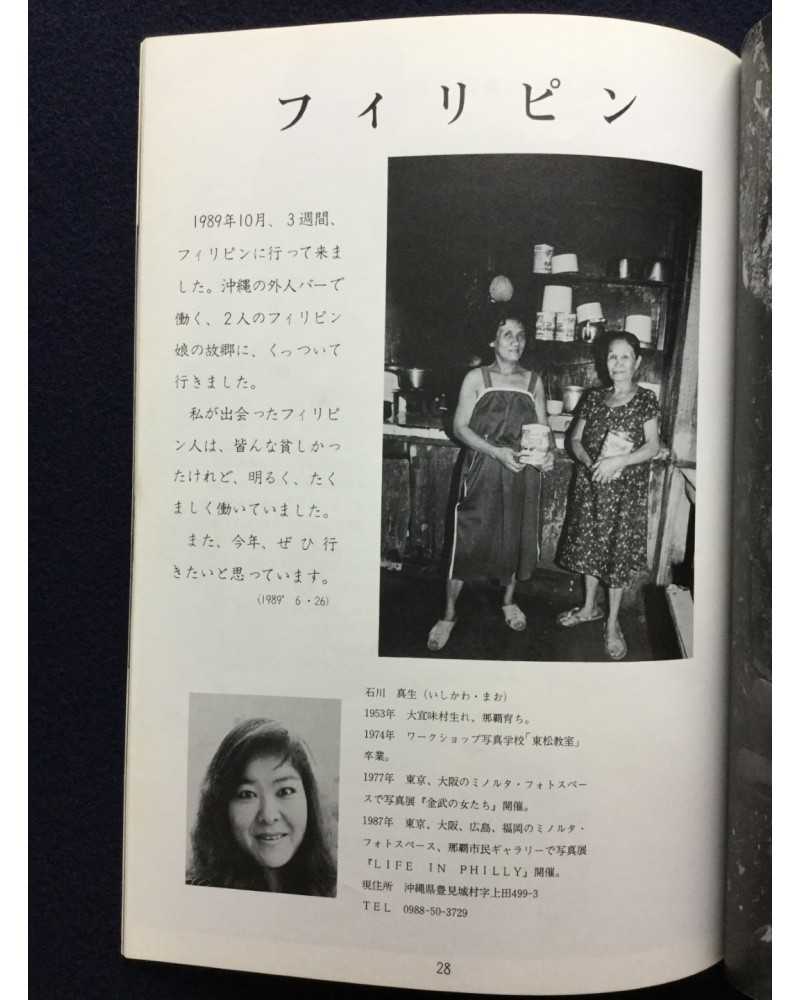 フィリピン
1989年10月、3週間、
フィリピンに行って来ま
した。沖縄の外人バーで
働く、2人のフィリピン
娘の故郷に、くっついて
行きました。
私が出会ったフィリピ
ン人は、皆んな貧しかっ
たけれど、明るく、たく
ましく働いていました。
また、今年、ぜひ行
きたいと思っています。
(1989° 6・26)
石川 真生(いしかわ・まお)
1953年 大宜味村生れ、那覇育ち。
1974年 ワークショップ写真学校「東松教室」
卒業。
1977年 東京、大阪のミノルタ・フォトスペー
スで写真展『金武の女たち』開催。
1987年 東京、大阪、広島、福岡のミノルタ・
フォトスペース、那覇市民ギャラリーで写真展
『LIFE IN PHILLY』開催。
現住所 沖縄県豊見城村字上田499-3
TEL 0988-50-3729
28